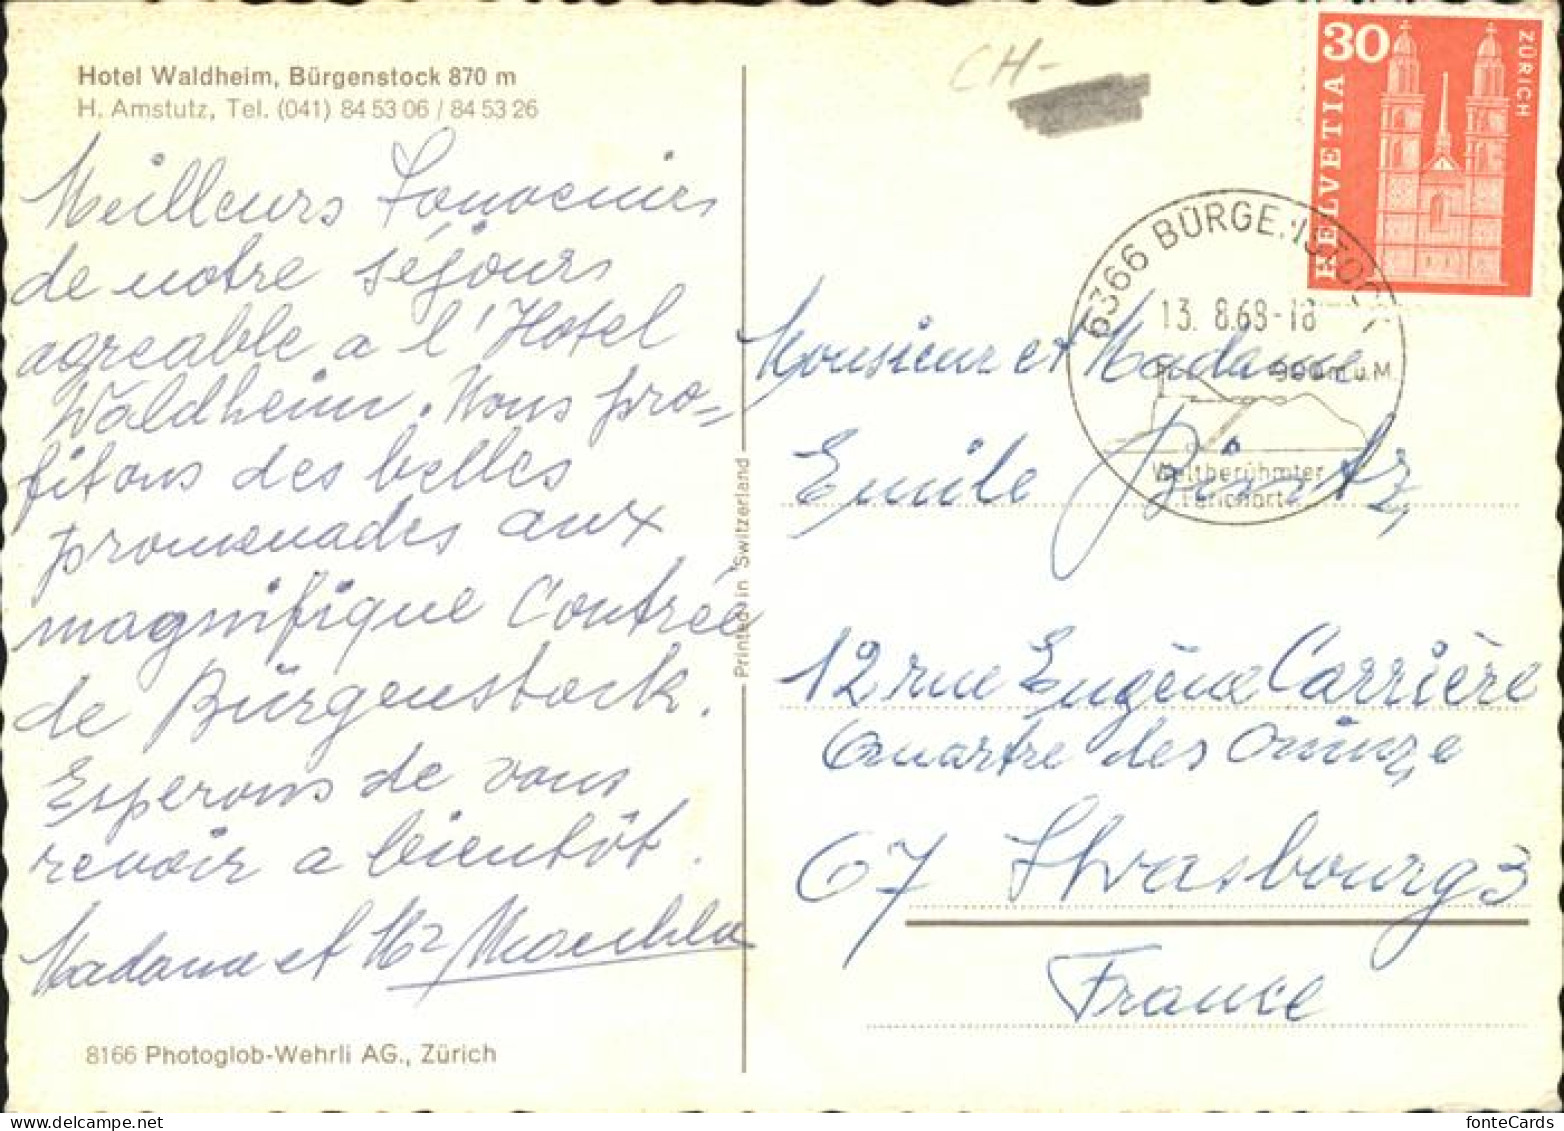 Hotel Waldheim, Bürgenstock 870 m
H. Amstutz, Tel. (041) 84 53 06 / 84 53 26
Meilleurs Souvenirs
de notre séjours
agreable a l'Hotel
Waldheim. Nous pro=
fitons des belles
promenades aux
magnifique Contrée
de Bürgenstock.
Esperons de vous
revoir a bientôt.
Madame et Mr
8166 Photoglob-Wehrli AG., Zürich
Printed in Switzerland
CH-
30
HELVETIA
ZÜRICH
6366 BÜRGENSTOCK
13. 8.68-18
900 m ü.M.
Weltberühmter
Ferienort
Monsieur et Madame
Emile
12 rue Eugène Carrière
des
67 Strasbourg 3
France
fonteCards